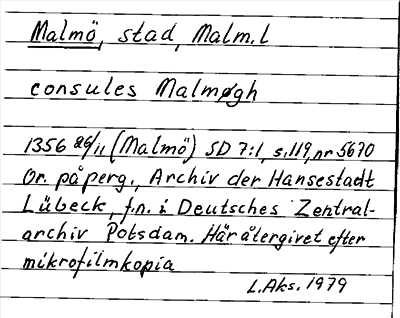 Malmö, stad, Malm.l
consules Malmøgh
1356 26/11 (Malmö) SD 7:1, s.119, nr 5670
Or. på perg., Archiv der Hansestadt
Lübeck, f.n. i Deutsches Zentral-
archiv Potsdam. Här återgivet efter
mikrofilmkopia
L.Aks. 1979